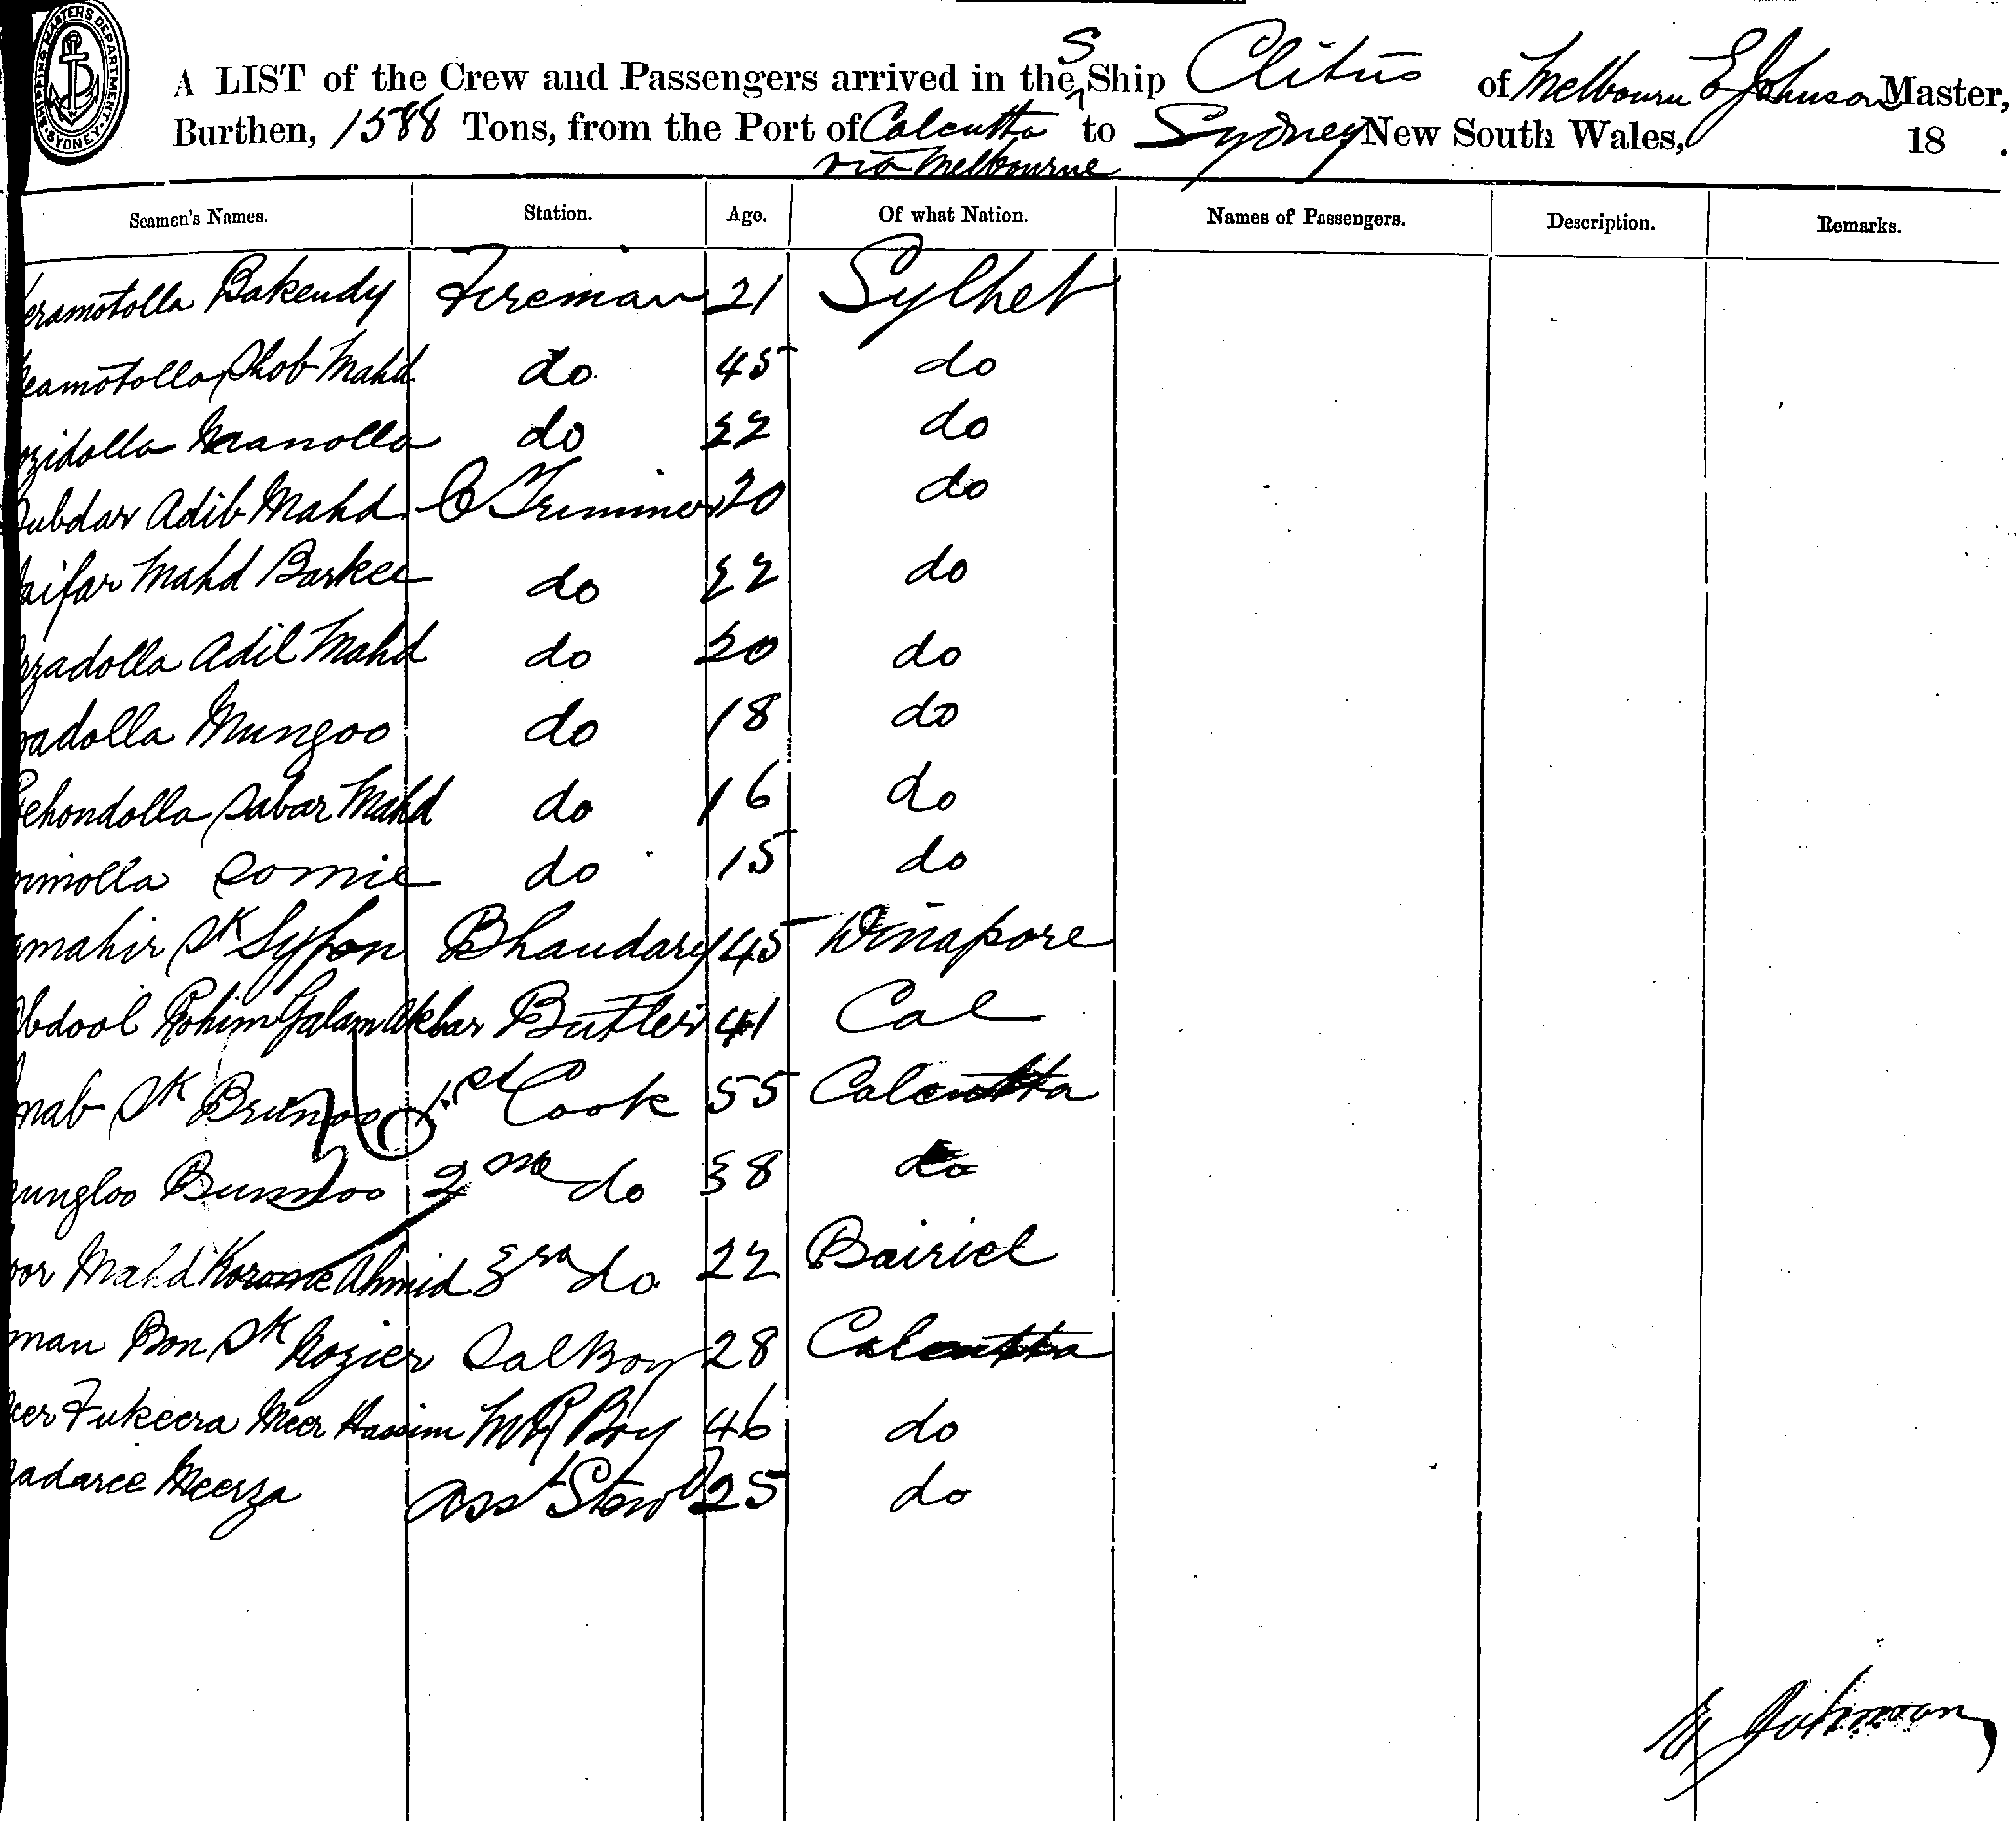 SHIPPING MASTERS DEPARTMENT SYDNEY
A LIST of the Crew and Passengers arrived in the S Ship Clitus of Melbourn E Johnson Master,
Burthen, 1588 Tons, from the Port of Calcutta to Sydney New South Wales, 18 .
via Melbourne
Seamen's Names. Station. Age. Of what Nation. Names of Passengers. Description. Remarks.
eramotolla Bakendy Fireman 21 Sylhet
eamotolla Shob Mahd do 45 do
ozidolla Manolla do 22 do
ubdar Adib Mahd C Trimmer 20 do
aifar Mahd Barkee do 22 do
zadolla Adil Mahd do 20 do
adolla Mungoo do 18 do
ehondolla Sabar Mahd do 16 do
imolla Somie do 15 do
mahir Sk Bhaudary 45 Dinapore
Abdool Rohim Galam Akbar Butler 41 Cal
mab Sk 1st Cook 55 Calcutta
ungloo 2nd do 38 do
oor Mahd Ahmid 3rd do 22
man Bon Sk Nozier 28 Calcutta
eer Fukeera Meer Hassim M R Boy 46 do
adaree Meerza Asst Stewd 25 do
E Johnson